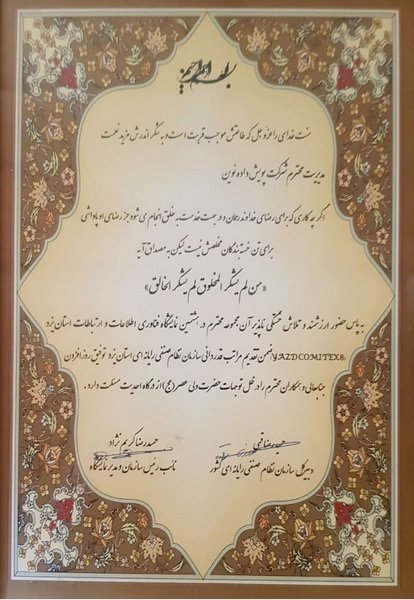 بسم الله الرحمن الرحیم
منت خدای را عزوجل که طاعتش موجب قربت است و به شکر اندرش مزید نعمت
مدیریت محترم شرکت پویش داده نوین
اگر چه کاری که برای رضای خداوند رحمان و در جهت خدمت به خلق انجام می شود جز رضای او پاداشی
برای تن خسته بندگان مخلصش نیست لیکن به مصداق آیه
«من لم یشکر المخلوق لم یشکر الخالق»
به پاس حضور ارزشمند و تلاش خستگی ناپذیر آن مجموعه محترم در هشتمین نمایشگاه فناوری اطلاعات و ارتباطات استان یزد
YAZDCOMITEX8 ضمن تقدیم مراتب قدردانی سازمان نظام صنفی رایانه ای استان یزد توفیق روز افزون
جنابعالی و همکاران محترم را در ظل توجهات حضرت ولی عصر (عج) از درگاه احدیت مسئلت دارد.
حمیدرضا کریم نژاد
نائب رئیس سازمان و مدیر نمایشگاه
دبیر کل سازمان نظام صنفی رایانه ای کشور